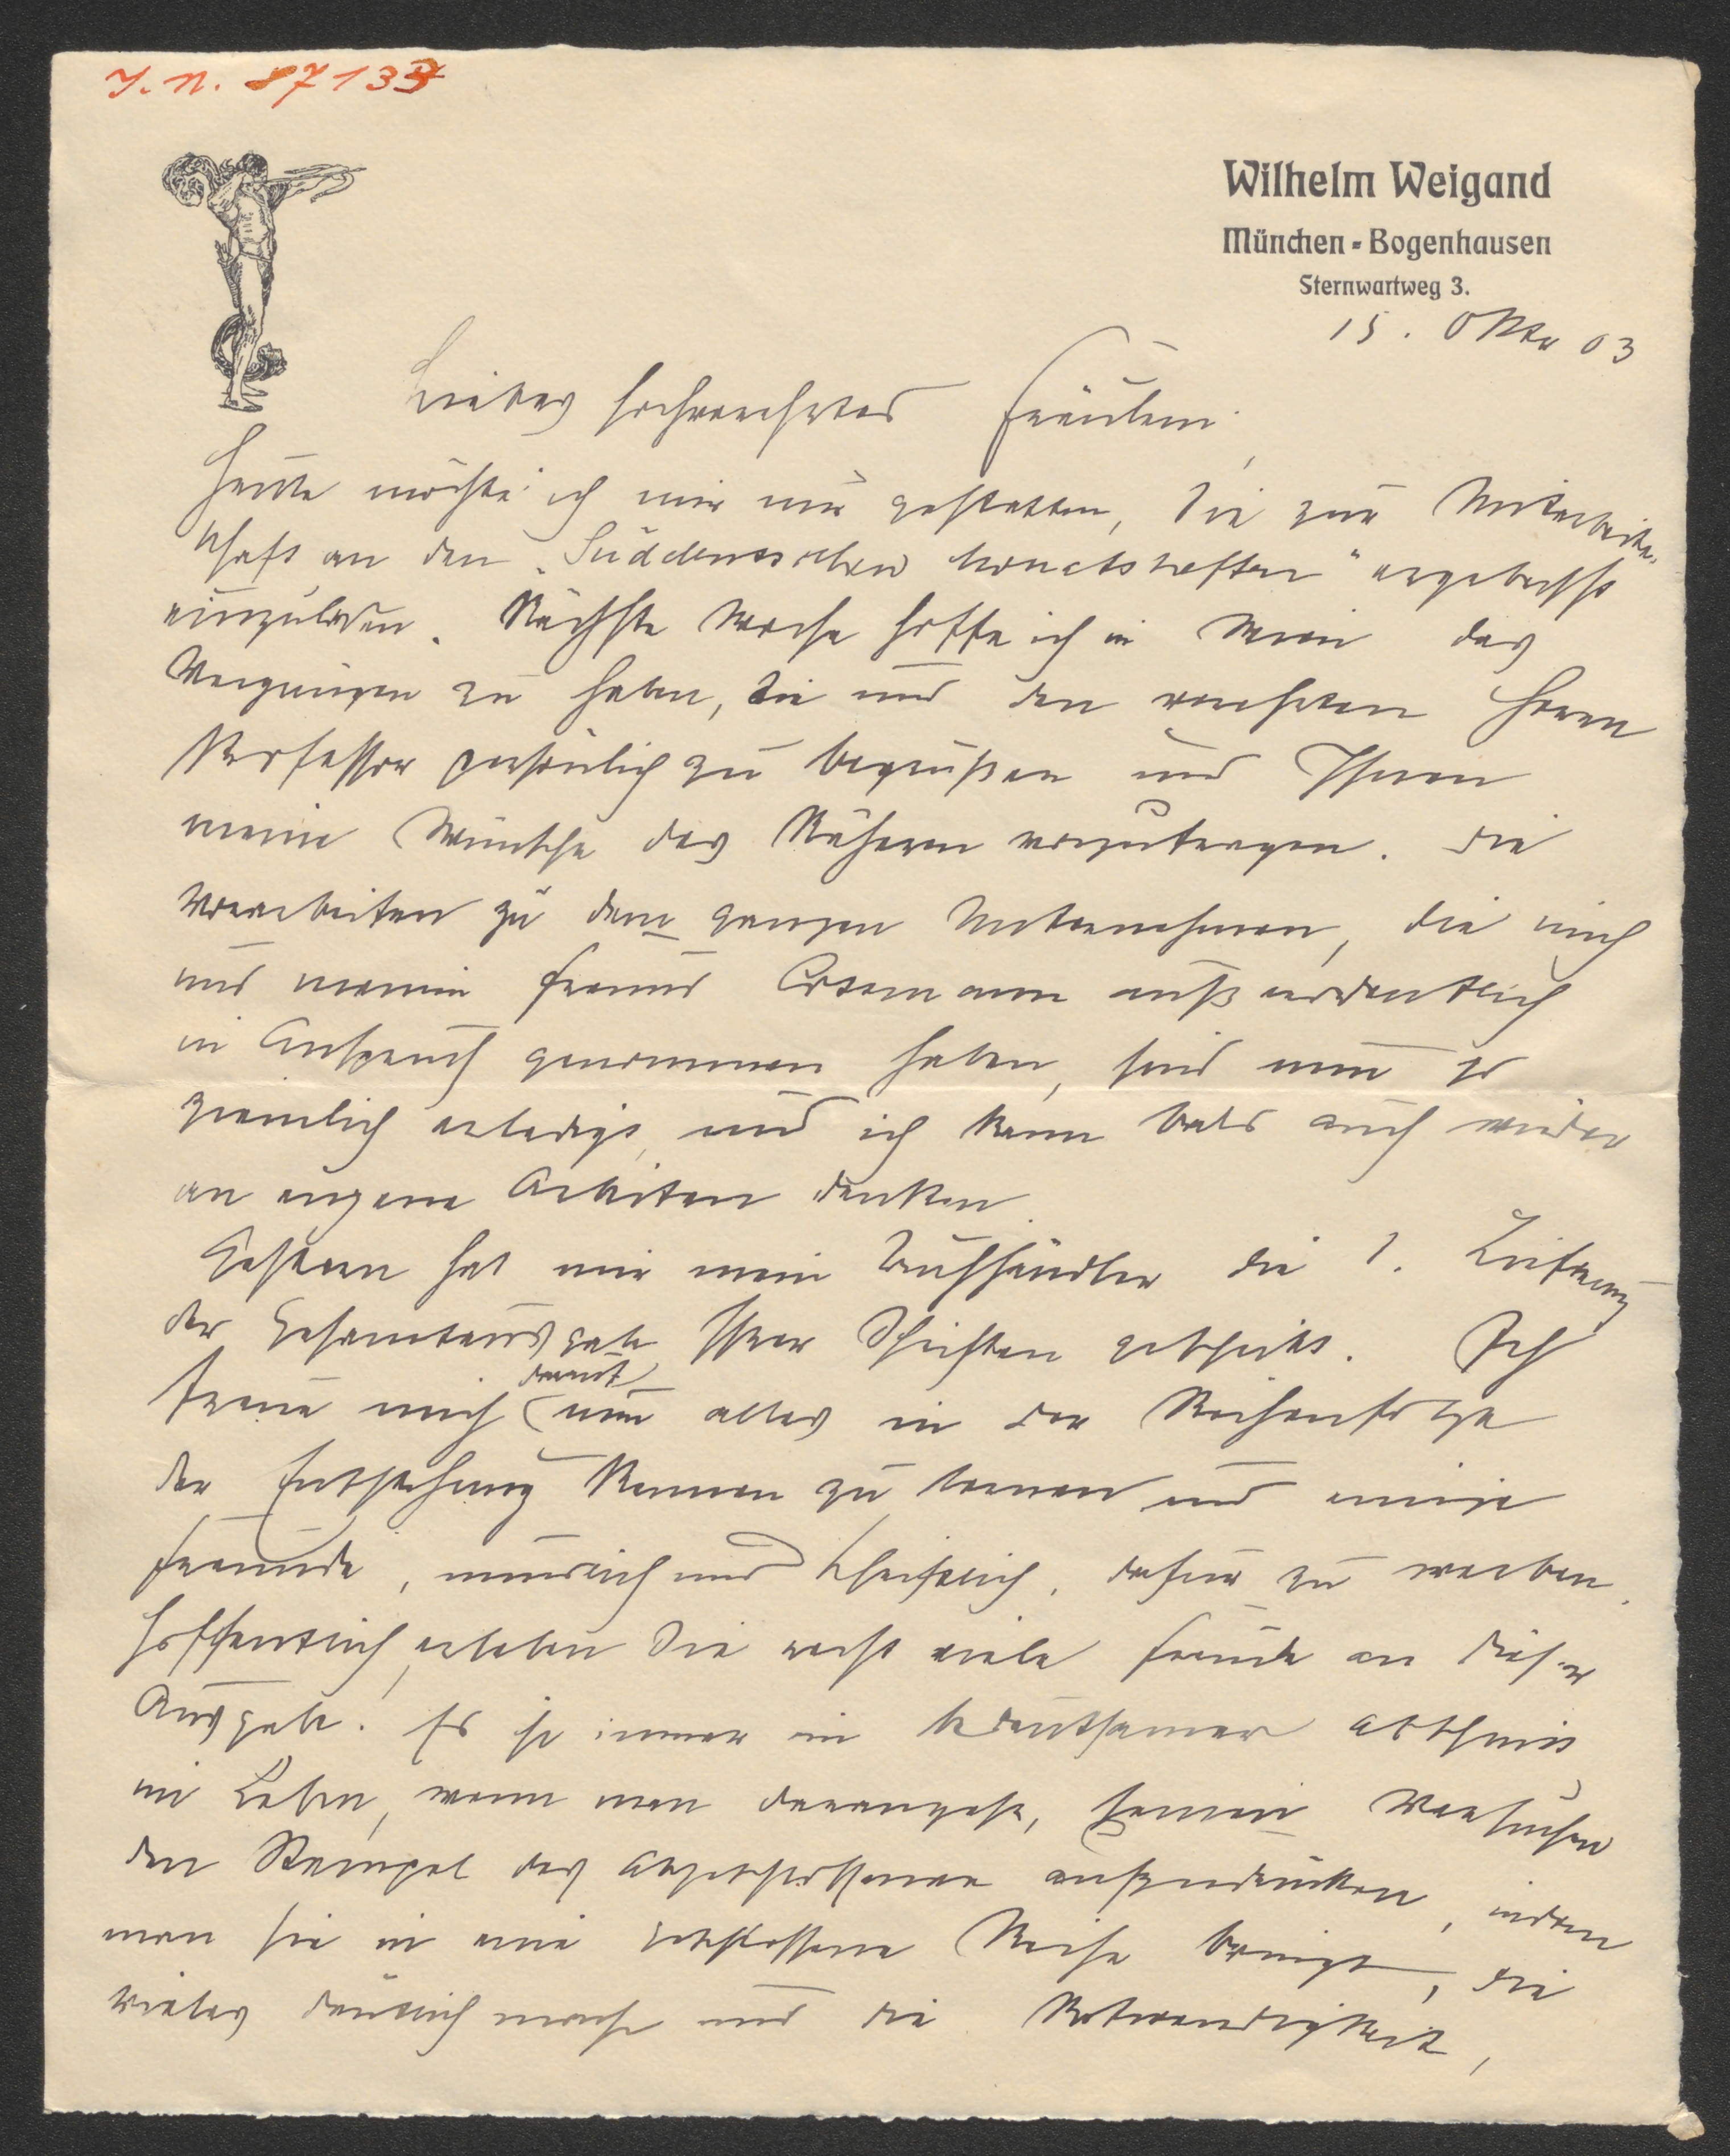 J. N. 87133
Wilhelm Weigand
München-Bogenhausen
Sternwartweg 3.
15. Oktr 03
Liebes hochverehrtes Fräulein,
Heute möchte ich mir nur gestatten, Sie zur Mitarbeiter-
schaft an den „Süddeutschen Monatsheften" ergebenst
einzuladen. Nächste Woche hoffe ich in Wien das
Vergnügen zu haben, Sie und den verehrten Herrn
Professor persönlich zu begrüßen und Ihnen
meine Wünsche des Näheren vorzutragen. Die
Vorarbeiten zu dem ganzen Unternehmen, die mich
und meinen Freund außerordentlich
in Anspruch genommen haben, sind nun so
ziemlich erledigt, und ich kann bald auch wieder
an eigene Arbeiten denken.
Gestern hat mir mein Buchhändler die 1. Lieferung
der Gesamtausgabe Ihrer Schriften geschickt. Ich
freue mich darauf nun alles in der Reihenfolge
der Entstehung kennen zu lernen und einige
Freunde, mündlich und schriftlich, dafür zu werben.
Hoffentlich erleben Sie recht viele Freude an dieser
Ausgabe. Es ist immer ein bedeutsamer Abschnitt
im Leben, wenn man darangeht, seinen Versuchen
den Stempel des Abgeschlossenen aufzudrücken, indem
man sie in eine geschlossene Reihe bringt, die
vieles deutlich macht und die Notwendigkeit,